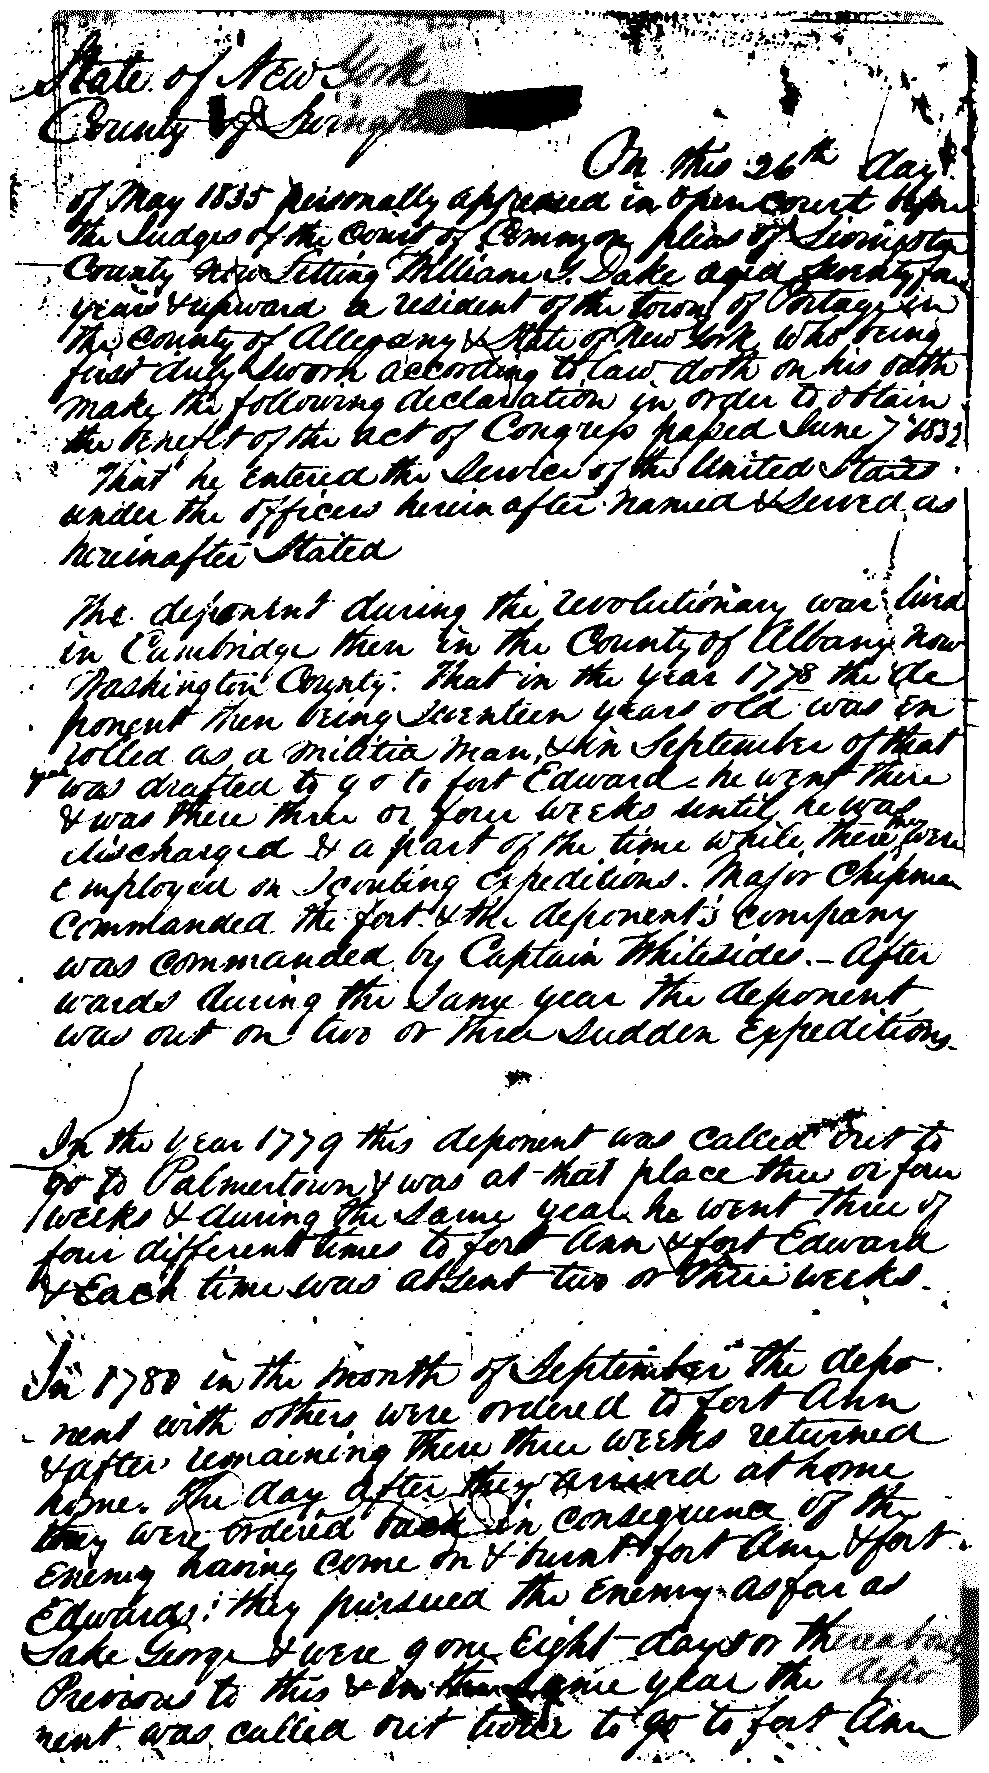 State of New York
County of Livingston
On this 26th day
of May 1835 personally appeared in open court before
the Judges of the Court of Common pleas of Livingston
County now Sitting William G. Dake aged seventy four
years & upward a resident of the town of Portage in
the County of Allegany & State of New York who being
first duly Sworn according to law doth on his oath
make the following declaration in order to obtain
the benefit of the act of Congress passed June 7th 1832
That he Entered the Service of the United States
under the officers herein after named & Served as
hereinafter Stated
The deponent during the revolutionary war lived
in Cambridge then in the County of Albany now
Washington County. That in the year 1778 the de
ponent then being Seventeen years old was en
rolled as a militia man, & in September of that
year was drafted to go to fort Edward - he went there
& was there three or four weeks until he was
discharged & a part of the time while there they were
employed on Scouting Expeditions. Major Chipman
Commanded the fort & the deponent's company
was commanded by Captain Whitesides. - After
wards during the Same year the deponent
was out on two or three Sudden Expeditions.
In the Year 1779 this deponent was called out to
go to Palmertown & was at that place three or four
weeks & during the Same year he went three or
four different times to fort Ann & fort Edward
& Each time was absent two or three weeks.
In 1780 in the month of September the depo
nent with others were ordered to fort Ann
& after remaining there three weeks returned
home. The day after they arrived at home
they were ordered back in consequence of the
Enemy having come on & burnt fort Ann & fort
Edward; they pursued the Enemy as far as
Lake George & were gone Eight days or thereabouts
Previous to this & in the same year the depo
nent was called out twice to go to fort Ann